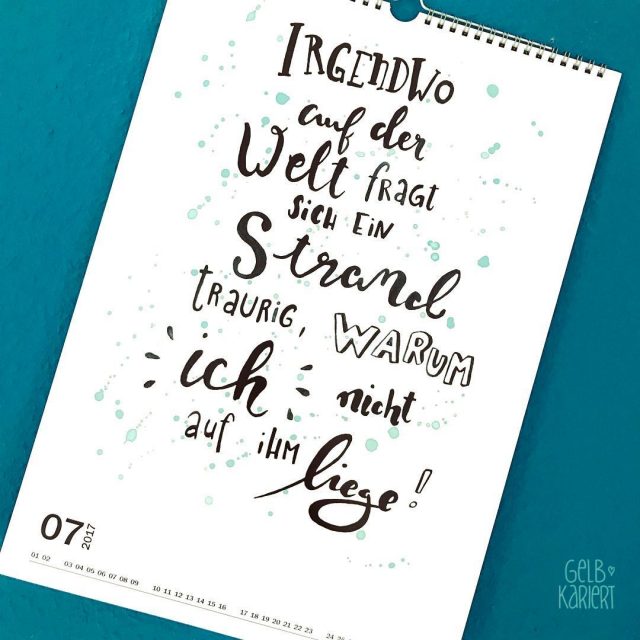 IRGENDWO
auf der
Welt fragt
sich ein
Strand
traurig, WARUM
ich nicht
auf ihm
liege!
07 2017
01 02 03 04 05 06 07 08 09 10 11 12 13 14 15 16 17 18 19 20 21 22 23 24 25
GELB
KARIERT